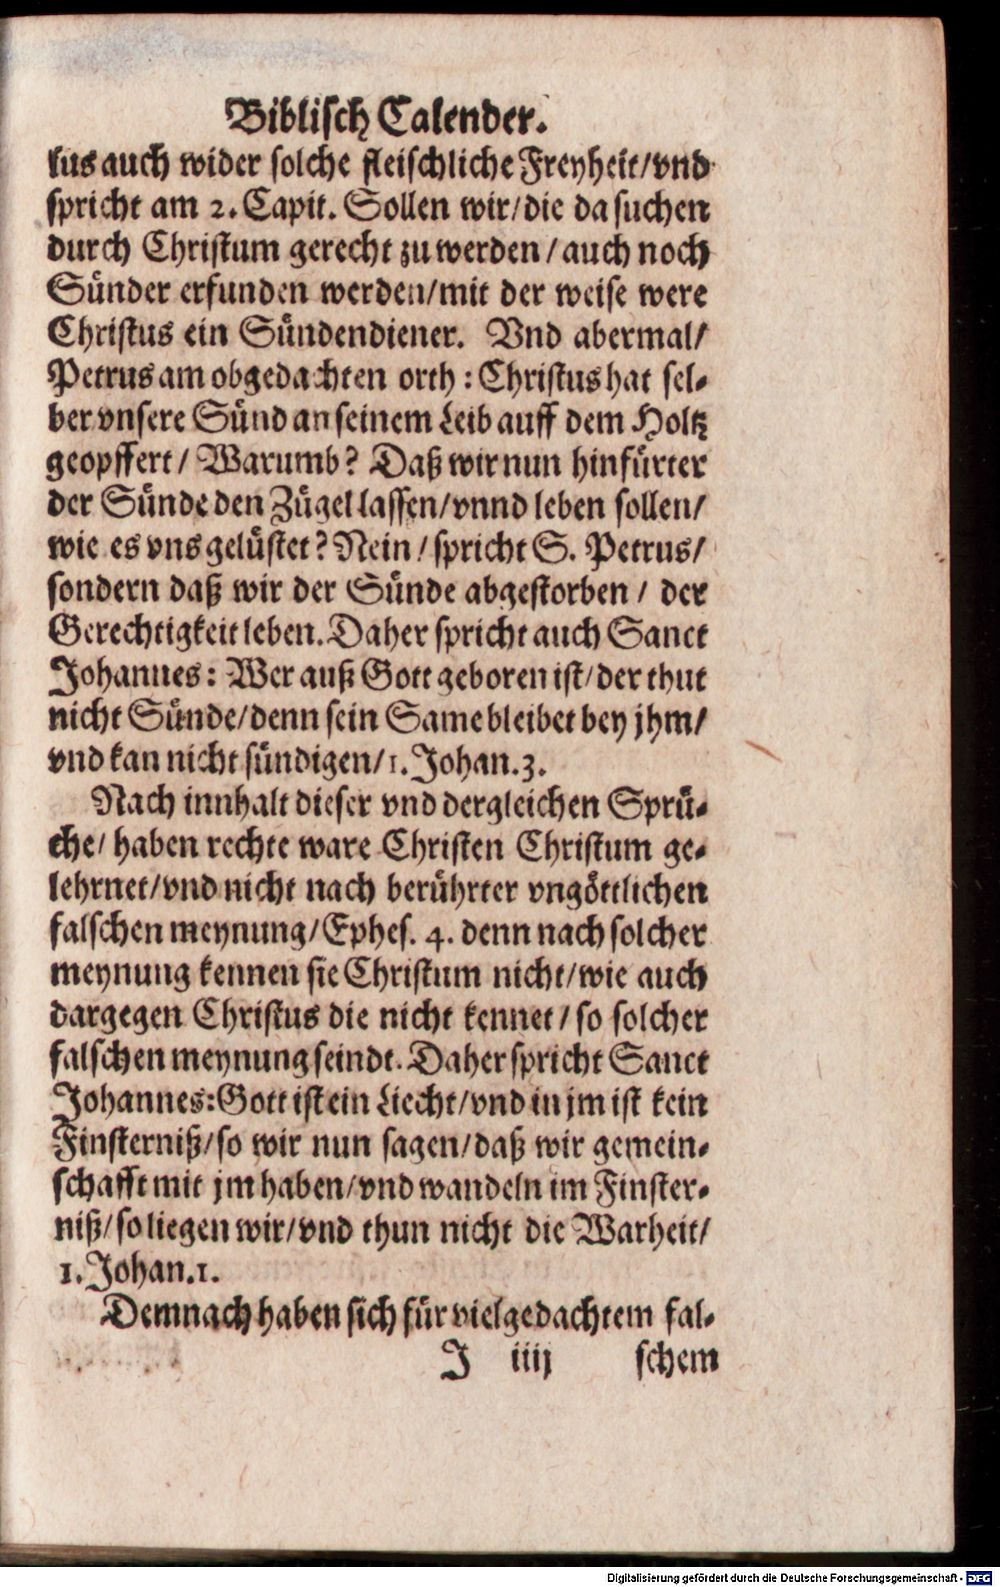 Biblisch Calender.
lus auch wider solche fleischliche Freyheit/vnd
spricht am 2. Capit. Sollen wir/die da suchen
durch Christum gerecht zu werden/auch noch
Sünder erfunden werden/mit der weise were
Christus ein Sündendiener. Vnd abermal/
Petrus am obgedachten orth: Christus hat sel-
ber vnsere Sünd an seinem Leib auff dem Holtz
geopffert/ Warumb? Daß wir nun hinfürter
der Sünde den Zügel lassen/vnnd leben sollen/
wie es vns gelüstet? Nein/spricht S. Petrus/
sondern daß wir der Sünde abgestorben/ der
Gerechtigkeit leben. Daher spricht auch Sanct
Johannes: Wer auß Gott geboren ist/der thut
nicht Sünde/denn sein Same bleibet bey jhm/
vnd kan nicht sündigen/1. Johan.3.
Nach innhalt dieser vnd dergleichen Sprü-
che/ haben rechte ware Christen Christum ge-
lehrnet/vnd nicht nach berührter vngöttlichen
falschen meynung/Ephes. 4. denn nach solcher
meynung kennen sie Christum nicht/wie auch
dargegen Christus die nicht kennet/so solcher
falschen meynung seindt. Daher spricht Sanct
Johannes: Gott ist ein Liecht/vnd in jm ist kein
Finsterniß/so wir nun sagen/daß wir gemein-
schafft mit jm haben/vnd wandeln im Finster-
niß/so liegen wir/vnd thun nicht die Warheit/
1. Johan.1.
Demnach haben sich für vielgedachtem fal-
J iiij schem
Digitalisierung gefördert durch die Deutsche Forschungsgemeinschaft - DFG